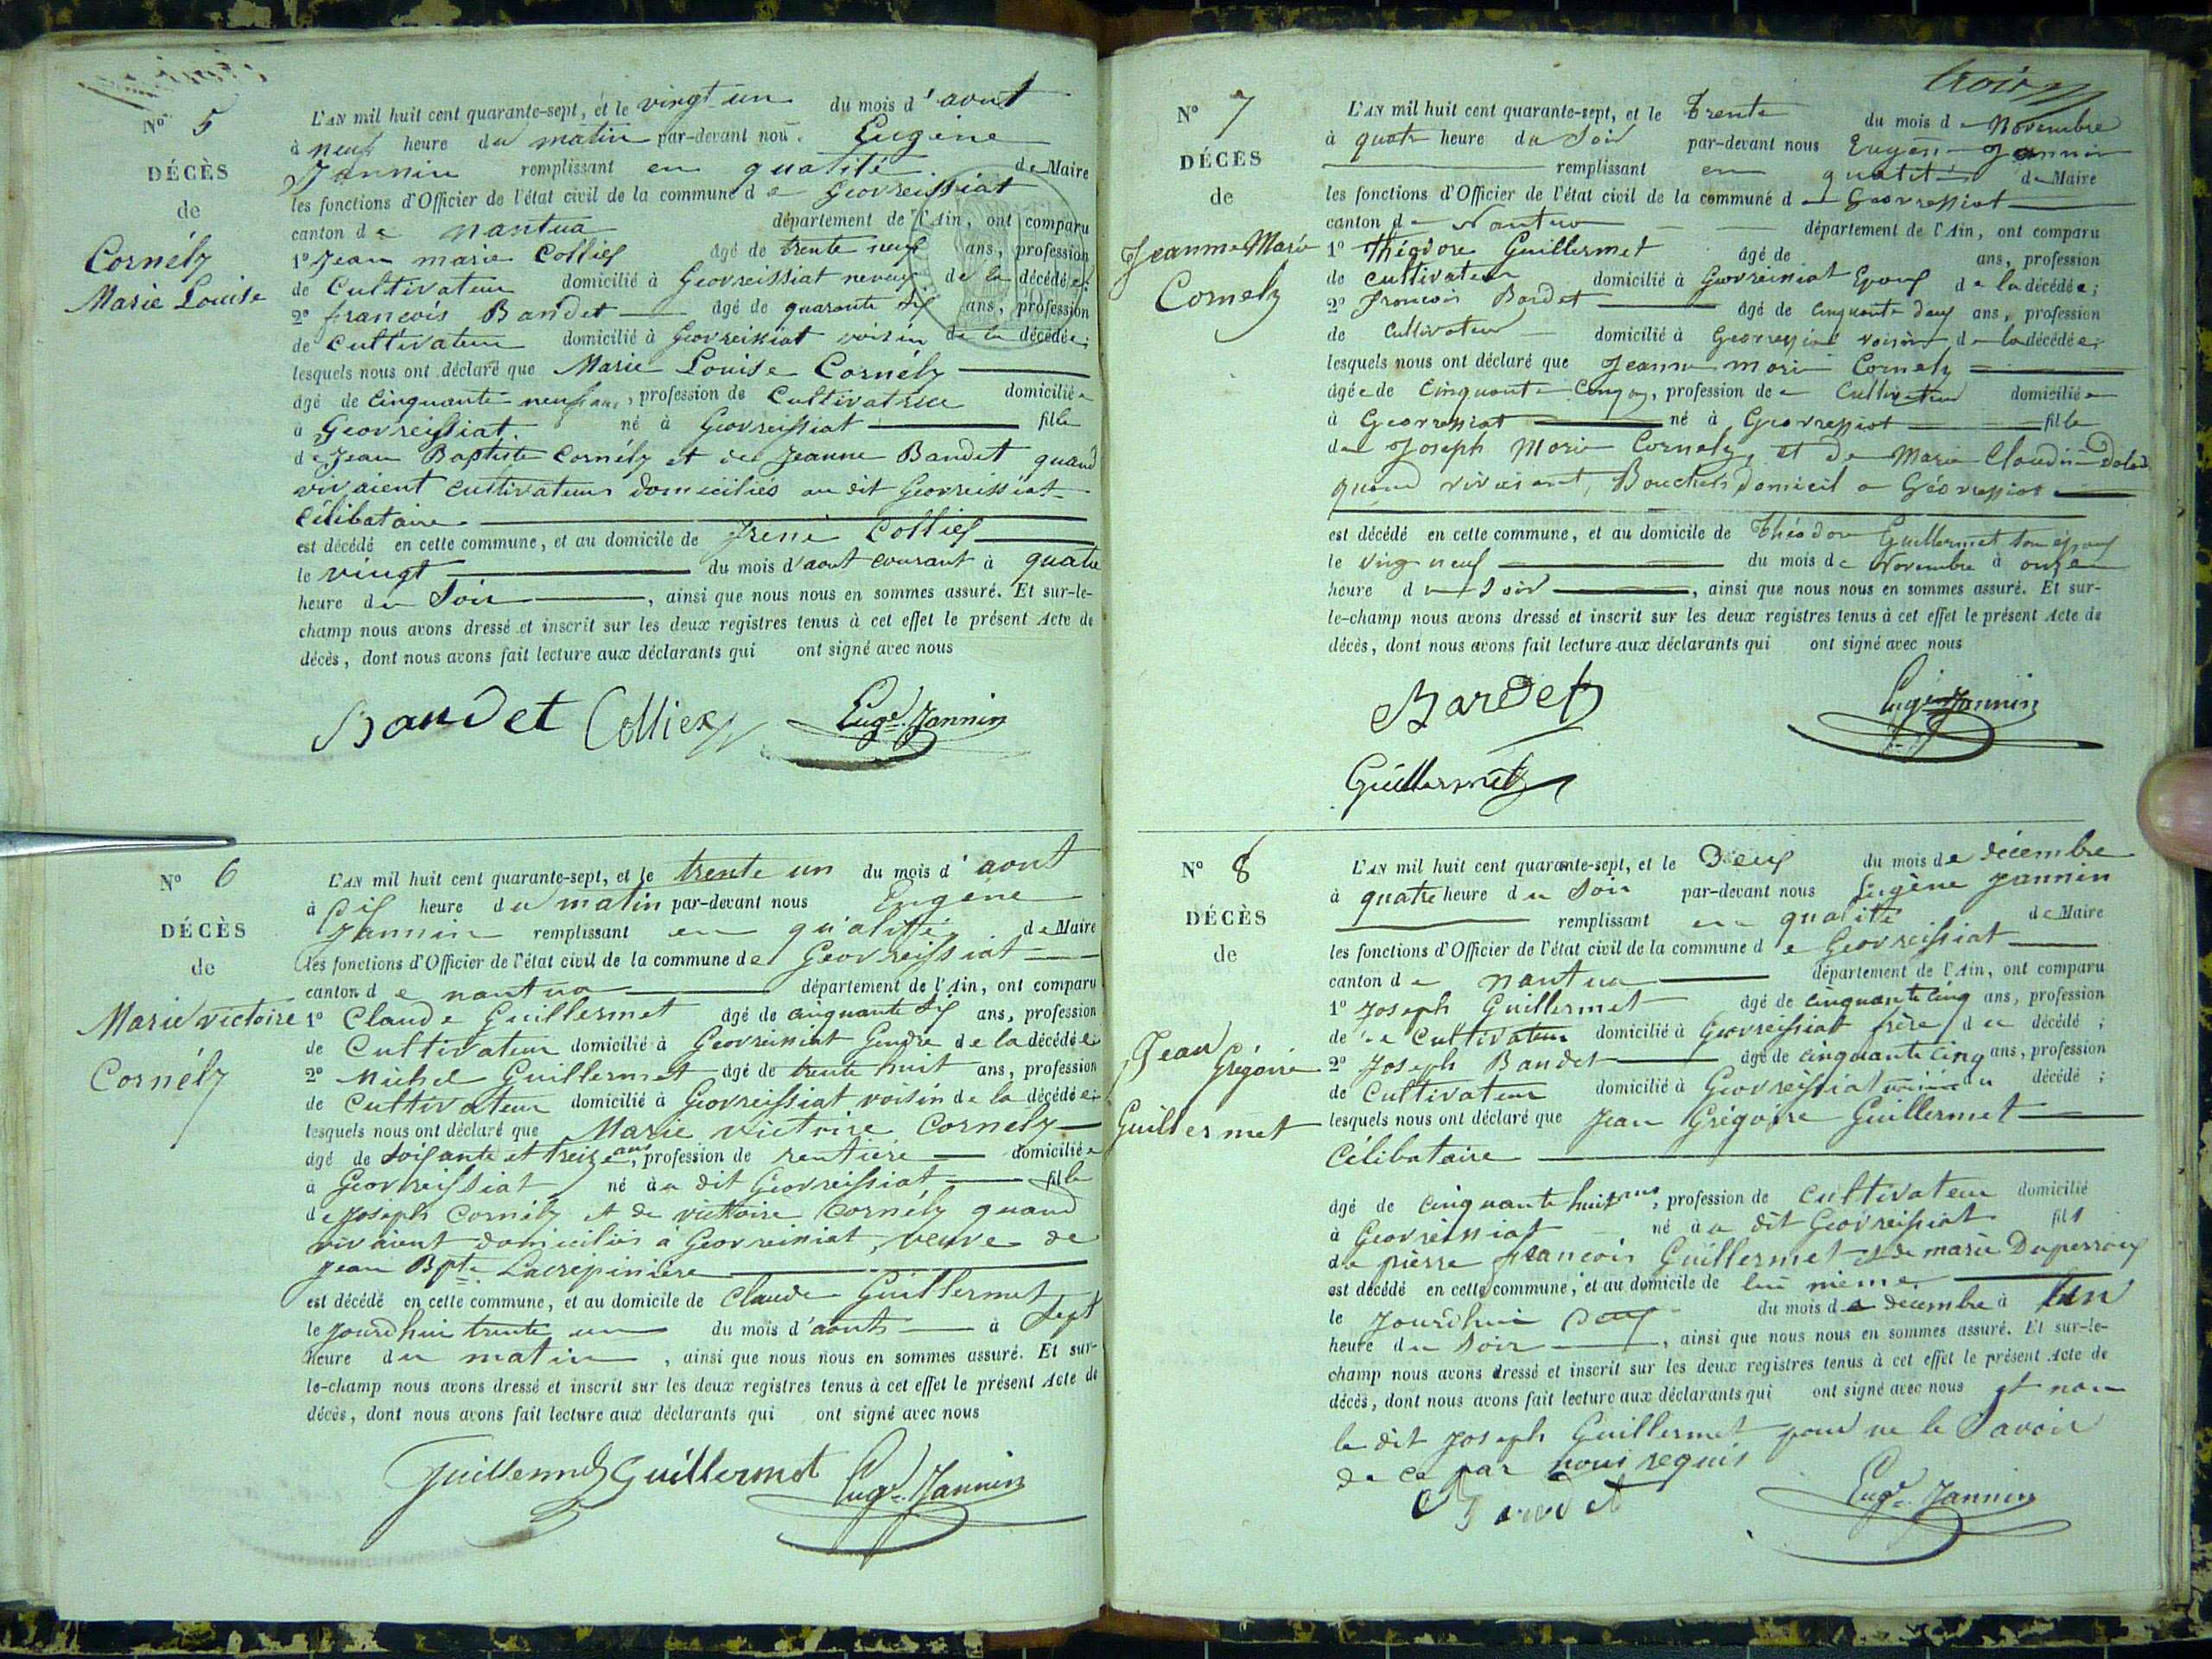 No 5
DÉCÈS
de
Cornély
Marie Louise
L'AN mil huit cent quarante-sept, et le vingt un du mois d'aout
à neuf heure du matin par-devant nou. Eugène
Jannin remplissant en qualité de Maire
les fonctions d'Officier de l'état civil de la commune de Georreissiat
canton de nantua département de l'Ain, ont comparu
1o Jean marie Colliex âgé de trente neuf ans, profession
de Cultivateur domicilié à Georreissiat neveux de la décédée;
2o francois Baudet âgé de quarante six ans, profession
de Cultivateur domicilié à Georreissiat voisin de la décédée;
lesquels nous ont déclaré que Marie Louise Cornély
âgé de Cinquante neuf ans, profession de Cultivatrice domiciliée
à Georreissiat. né à Georreissiat fille
de Jean Baptiste Cornély et de Jeanne Baudet quand
vivaient cultivateurs domiciliés au dit Georreissiat
Célibataire
est décédé en cette commune, et au domicile de Colliex
le vingt du mois d'aout courant à quatre
heure du Soir, ainsi que nous nous en sommes assuré. Et sur-le-
champ nous avons dressé et inscrit sur les deux registres tenus à cet effet le présent Acte de
décès, dont nous avons fait lecture aux déclarants qui ont signé avec nous
Baudet Colliex Euge. Jannin
No 6
DÉCÈS
de
Marie victoire
Cornély
L'AN mil huit cent quarante-sept, et le trente un du mois d'aout
à Dix heure du matin par-devant nous Eugène
Jannin remplissant en qu'alité de Maire
les fonctions d'Officier de l'état civil de la commune de Georreissiat
canton de nantua département de l'Ain, ont comparu
1o Claude Guillermet âgé de cinquante six ans, profession
de Cultivateur domicilié à Georreissiat Gendre de la décédée;
2o Michel Guillermet âgé de trente huit ans, profession
de Cultivateur domicilié à Georreissiat voisin de la décédée;
lesquels nous ont déclaré que Marie victoire Cornély
âgé de Soixante et treize ans, profession de rentière domiciliée
à Georreissiat né au dit Georreissiat fille
de Joseph Cornély et de victoire Cornély quand
vivaient domiciliés à Georreissiat, veuve de
Jean Bpte Lacrépinière
est décédé en cette commune, et au domicile de Claude Guillermet
le Jourdhui trente un du mois d'aout à Sept
heure du matin, ainsi que nous nous en sommes assuré. Et sur-
le-champ nous avons dressé et inscrit sur les deux registres tenus à cet effet le présent Acte de
décès, dont nous avons fait lecture aux déclarants qui ont signé avec nous
Guillermet Guillermet Euge. Jannin
trois
No 7
DÉCÈS
de
Jeanne Marie
Cornely
L'AN mil huit cent quarante-sept, et le trente du mois de Novembre
à quatre heure du Soir par-devant nous Eugène Jannin
remplissant en qualité de Maire
les fonctions d'Officier de l'état civil de la commune de Georressiat
canton de Nantua département de l'Ain, ont comparu
1o théodore Guillermet âgé de ans, profession
de cultivateur domicilié à Georreissiat Epoux de la décédée;
2o francois Bardet âgé de cinquante deux ans, profession
de Cultivateur domicilié à Georressiat voisin de la décédée;
lesquels nous ont déclaré que Jeanne marie Cornely
âgée de Cinquante Cinq ans, profession de Cultivateur domiciliée
à Georressiat né à Georressiat fille
de Joseph Marie Cornely, et de Marie Claudine
quand vivaient, Bouchers, domicil a Géorressiat
est décédé en cette commune, et au domicile de théodore Guillermet son époux
le vingt neuf du mois de Novembre à onze
heure du Soir, ainsi que nous nous en sommes assuré. Et sur-
le-champ nous avons dressé et inscrit sur les deux registres tenus à cet effet le présent Acte de
décès, dont nous avons fait lecture aux déclarants qui ont signé avec nous
Bardet Eugène Jannin
Guillermet
No 8
DÉCÈS
de
Jean
Grégoire
Guillermet
L'AN mil huit cent quarante-sept, et le Deux du mois de décembre
à quatre heure du Soir par-devant nous Eugène Jannin
remplissant en qualité de Maire
les fonctions d'Officier de l'état civil de la commune de Georreissiat
canton de nantua département de l'Ain, ont comparu
1o Joseph Guillermet âgé de cinquante cinq ans, profession
de Cultivateur domicilié à Georreissiat frère du décédé;
2o Joseph Baudet âgé de cinquante cinq ans, profession
de Cultivateur domicilié à Georreissiat voisin du décédé;
lesquels nous ont déclaré que Jean Grégoire Guillermet
Célibataire
âgé de cinquante huit ans, profession de cultivateur domicilié
à Georreissiat né au dit Georreissiat fils
de pierre francois Guillermet et de marie Duperroux
est décédé en cette commune, et au domicile de lui même
le Jourdhui Deux du mois de décembre à un
heure du Soir, ainsi que nous nous en sommes assuré. Et sur-le-
champ nous avons dressé et inscrit sur les deux registres tenus à cet effet le présent Acte de
décès, dont nous avons fait lecture aux déclarants qui ont signé avec nous et non
le dit Joseph Guillermet pour ne le Savoir
de ce par nous requis
Euge. Jannin